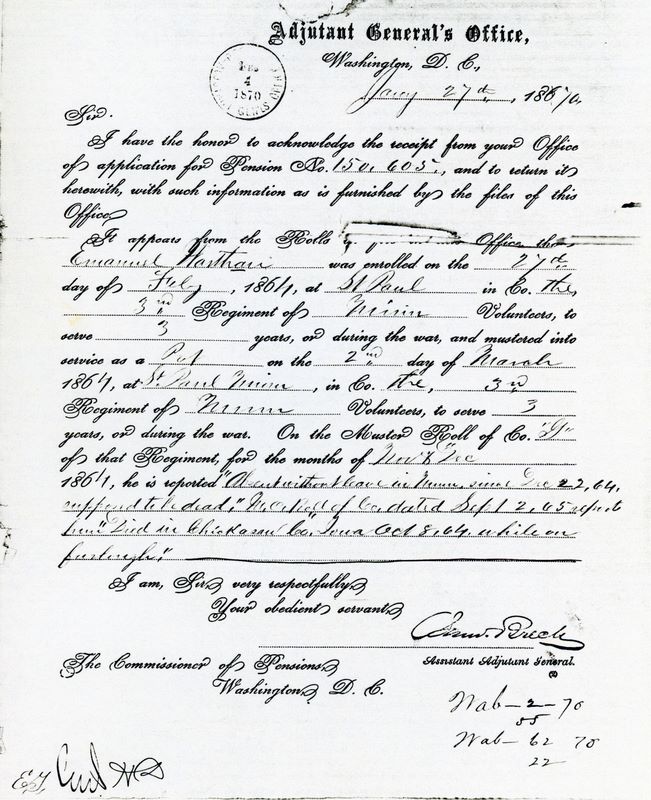 Adjutant General's Office,
Washington, D. C.,
4
1870
Jany 27th, 1870
Sir:
I have the honor to acknowledge the receipt from your Office
of application for Pension No. 150,605, and to return it
herewith, with such information as is furnished by the files of this
Office.
It appears from the Rolls Office that
Emanuel was enrolled on the 27th
day of Feby, 1864, at St Paul in Co. the,
3rd Regiment of Minn Volunteers, to
serve 3 years, or during the war, and mustered into
service as a Pvt on the 2nd day of March
1864, at St. Paul Minn, in Co. the, 3rd
Regiment of Minn Volunteers, to serve 3
years, or during the war. On the Muster Roll of Co. "G"
of that Regiment, for the months of Nov & Dec
1864, he is reported "Absent without leave in Minn since Dec 22, 64,
supposed to be dead," of Co. dated Sept 2, 65 report
him "Died in Chickasaw Co, Iowa Oct 8, 64, while on
furlough."
I am, Sir, very respectfully,
Your obedient servant,
Assistant Adjutant General.
The Commissioner of Pensions,
Washington, D. C.
Wab - 2 - 70
55
Wab - 62 70
22